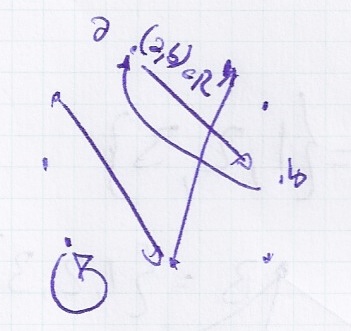 a
(a,b) ∈ R
b